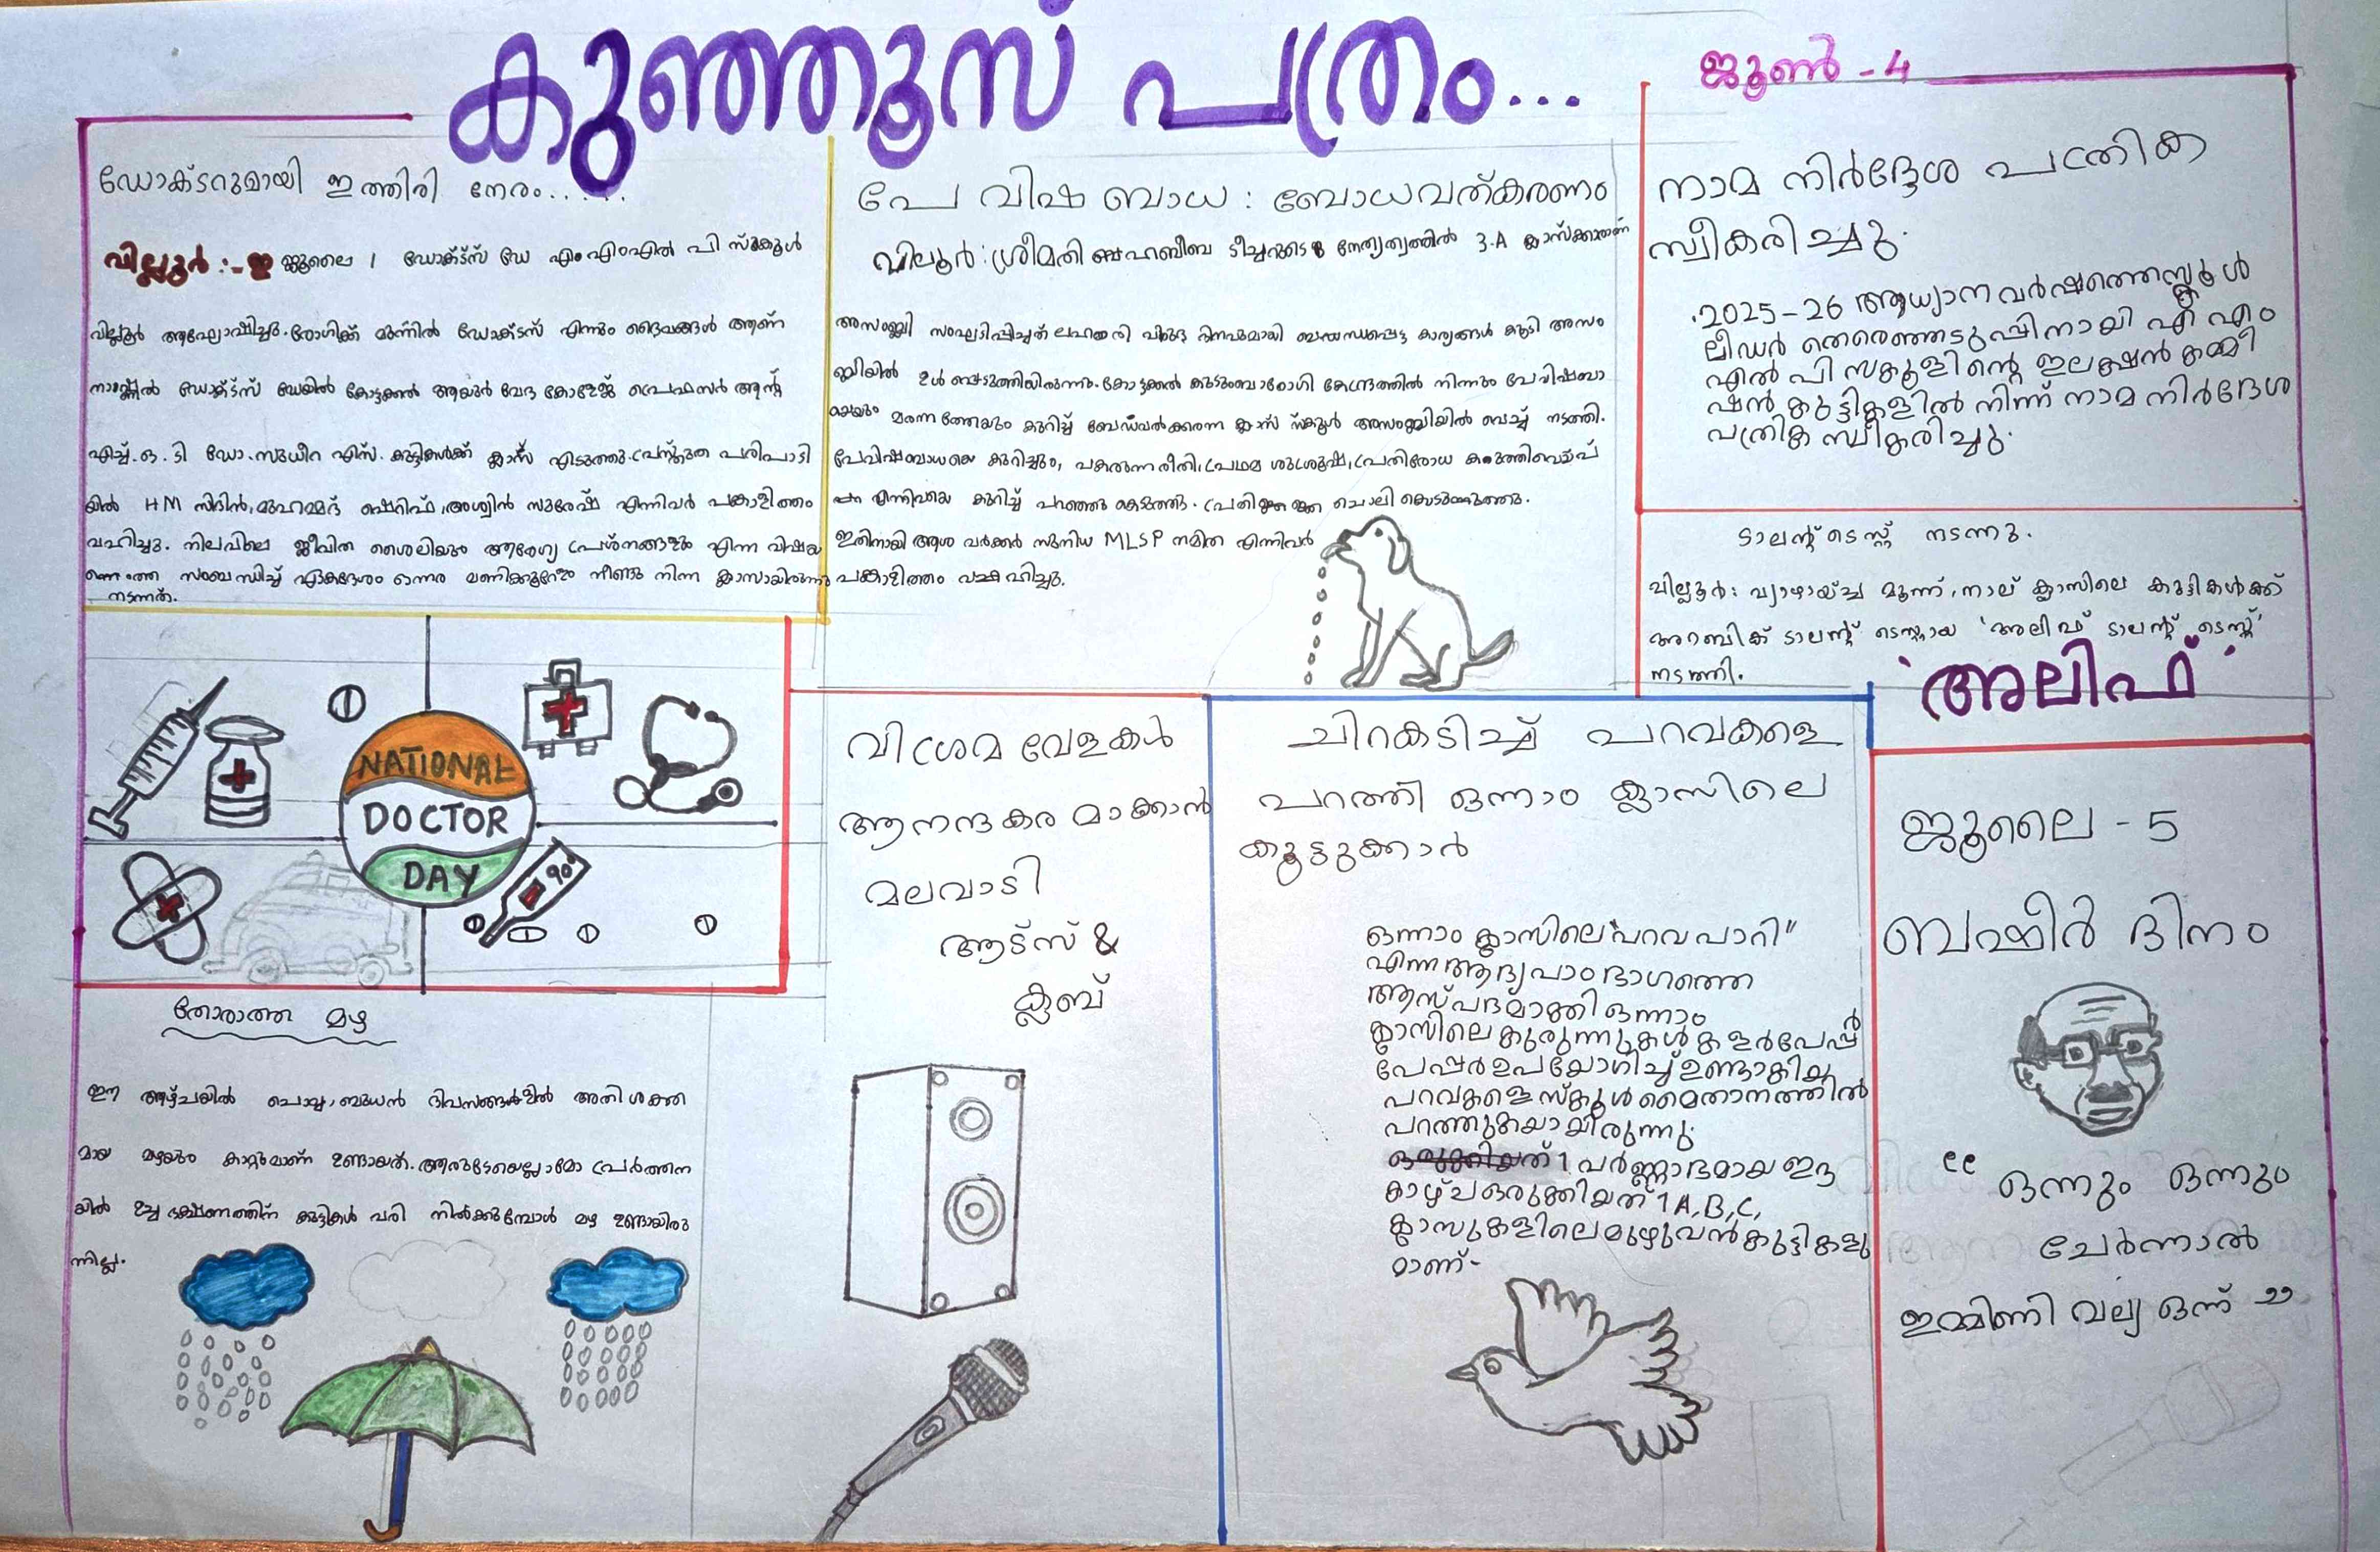 കുഞ്ഞൂസ് പത്രം...
ജൂൺ - 4
ഡോക്ടറുമായി ഇത്തിരി നേരം......
വില്ലൂർ :- ജൂലൈ 1 ഡോക്ട്സ് ഡേ എം എംഎൽ പി സ്കൂൾ
വില്ലൂർ ആഘോഷിച്ചു. രോഗിക്ക് മുന്നിൽ ഡോക്ടസ് എന്നും ദൈവങ്ങൾ ആണ്
ഡോക്ട്സ് ഡേയിൽ കോട്ടക്കൽ ആയുർ വേദ കോളേജ് പ്രെഫസർ ആന്റ്
എച്ച്.ഒ.ടി ഡോ.സുധീറ എസ്. കുട്ടികൾക്ക് ക്ലാസ് എടുത്തു. പ്രസ്തുത പരിപാടി
യിൽ HM സിദിൻ, മുഹമ്മദ് ഷെറിഫ്, അശ്വിൻ സുരേഷ് എന്നിവർ പങ്കാളിത്തം
വഹിച്ചു. നിലവിലെ ജീവിത ശൈലിയും ആരോഗ്യ പ്രശ്നങ്ങളും എന്ന വിഷയ
സംബന്ധിച്ച് ഏകദേശം ഒന്നര മണിക്കൂറോളം നീണ്ടു നിന്ന ക്ലാസായിരുന്നു
നടന്നത്.
പേ വിഷ ബാധ : ബോധവത്കരണം
വില്ലൂർ: ശ്രീമതി ഹബീബ ടീച്ചറുടെ നേതൃത്വത്തിൽ 3.A ക്ലാസ്ക്കാരാണ്
അസംബ്ലി സംഘടിപ്പിച്ചത് ലഹരി വിരുദ്ധ ദിനവുമായി ബന്ധപ്പെട്ട കാര്യങ്ങൾ കൂടി അസം
ബ്ലിയിൽ ഉൾപ്പെടുത്തിയിരുന്നു. കോട്ടക്കൽ കുടുംബാരോഗി കേന്ദ്രത്തിൽ നിന്നും പേവിഷബാ
മരുന്നത്തേയും കുറിച്ച് ക്ലാസ് സ്കൂൾ അസംബ്ലിയിൽ വെച്ച് നടത്തി.
പേവിഷബാധയെ കുറിച്ചും, പകരുന്ന രീതി, പ്രഥമ ശുശ്രൂഷ, പ്രതിരോധ കുത്തിവെപ്പ്
എന്നിവയെ കുറിച്ച് പറഞ്ഞു കൊടുത്തു. പ്രതിജ്ഞ ചൊല്ലി കൊടുത്തു.
ഇതിനായി ആശ വർക്കർ സുനിധ MLSP നമിത എന്നിവർ
പങ്കാളിത്തം വഹിച്ചു.
നാമ നിർദ്ദേശ പത്രിക
സ്വീകരിച്ചു.
2025-26 ആധ്യാന വർഷത്തെസ്കൂൾ
ലീഡർ തെരെഞ്ഞടുപ്പിനായി എ എം
എൽ പി സ്കൂളിന്റെ ഇലക്ഷൻ കമ്മീ
ഷൻ കുട്ടികളിൽ നിന്ന് നാമ നിർദേശ
പത്രിക സ്വീകരിച്ചു.
ടാലന്റ് ടെസ്റ്റ് നടന്നു.
വില്ലൂർ: വ്യാഴായ്ച്ച മൂന്ന്, നാല് ക്ലാസിലെ കുട്ടികൾക്ക്
അറബിക് ടാലന്റ് ടെസ്റ്റായ 'അലിഫ് ടാലന്റ് ടെസ്റ്റ്'
നടത്തി.
'അലിഫ്'
NATIONAL
DOCTOR
DAY
90°
വിശ്രമ വേളകൾ
ആനന്ദകര മാക്കാൻ
മലവാടി
ആട്സ് &
ക്ലബ്
ചിറകടിച്ച് പറവകളെ
പറത്തി ഒന്നാം ക്ലാസിലെ
കൂട്ടുക്കാർ
ഒന്നാം ക്ലാസിലെ "പറവ പാറി"
എന്ന ആദ്യ പാഠ ഭാഗത്തെ
ആസ്പദമാക്കി ഒന്നാം
ക്ലാസിലെ കുരുന്നുകൾ കളർപേപ്പർ
പേപ്പർ ഉപയോഗിച്ച് ഉണ്ടാക്കിയ
പറവകളെ സ്കൂൾ മൈതാനത്തിൽ
പറത്തുകയായിരുന്നു.
വർണ്ണാഭമായ ഈ
കാഴ്ച ഒരുക്കിയത് 1A,B,C,
ക്ലാസുകളിലെ മുഴുവൻ കുട്ടികളു
മാണ്-
ജൂലൈ - 5
ബഷീർ ദിനം
“ ഒന്നും ഒന്നും
ചേർന്നാൽ
ഇമ്മിണി വല്യ ഒന്ന് ”
തോരാത്ത മഴ
ഈ ആഴ്ചയിൽ ചൊവ്വ, ബുധൻ ദിവസങ്ങളിൽ അതി ശക്ത
മായ മഴയും കാറ്റുമാണ് ഉണ്ടായത്. ആരുടേയെല്ലാമോ പ്രർത്തന
യിൽ ഉച്ച ഭക്ഷണത്തിന് കുട്ടികൾ വരി നിൽക്കുമ്പോൾ മഴ ഉണ്ടായിരു
ന്നില്ല.